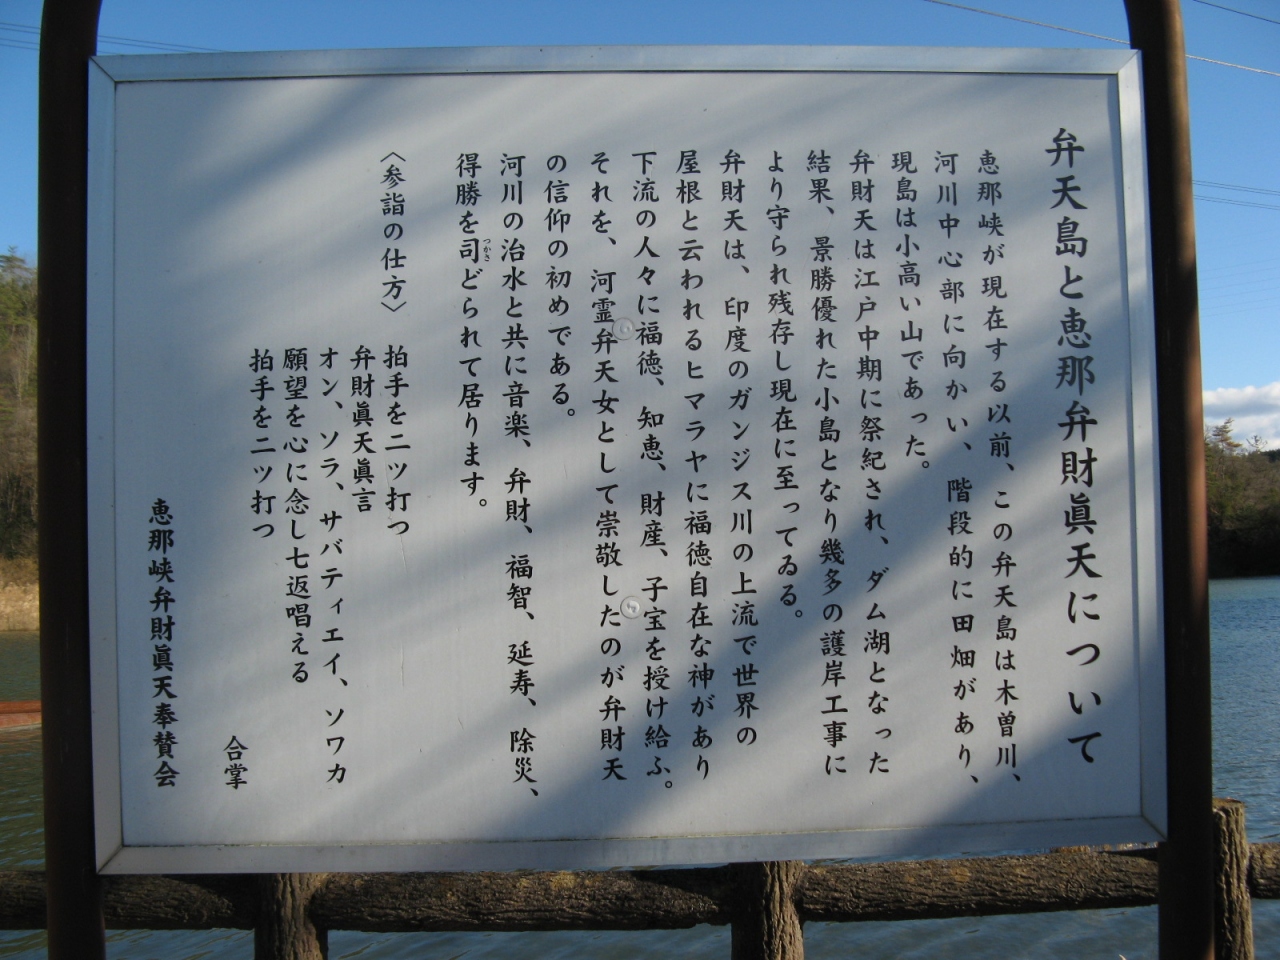 弁天島と恵那弁財眞天について
恵那峡が現在する以前、この弁天島は木曽川、
河川中心部に向かい、階段的に田畑があり、
現島は小高い山であった。
弁財天は江戸中期に祭紀され、ダム湖となった
結果、景勝優れた小島となり幾多の護岸工事に
より守られ残存し現在に至ってゐる。
弁財天は、印度のガンジス川の上流で世界の
屋根と云われるヒマラヤに福徳自在な神があり
下流の人々に福徳、知恵、財産、子宝を授け給ふ。
それを、河霊弁天女として崇敬したのが弁財天
の信仰の初めである。
河川の治水と共に音楽、弁財、福智、延寿、除災、
得勝を司どられて居ります。
つかさ
〈参詣の仕方〉
拍手を二ツ打つ
弁財眞天眞言
オン、ソラ、サバティエイ、ソワカ
願望を心に念し七返唱える
拍手を二ツ打つ
合掌
恵那峡弁財眞天奉賛会